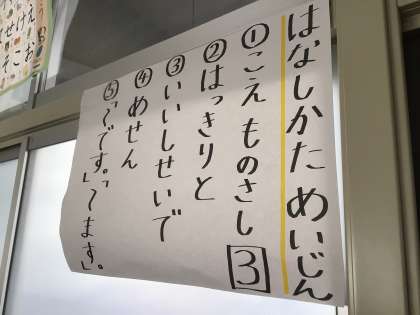 はなしかためいじん
①こえ ものさし 3
②はっきりと
③いいしせいで
④めせん
⑤「〜です。」「〜ます」。